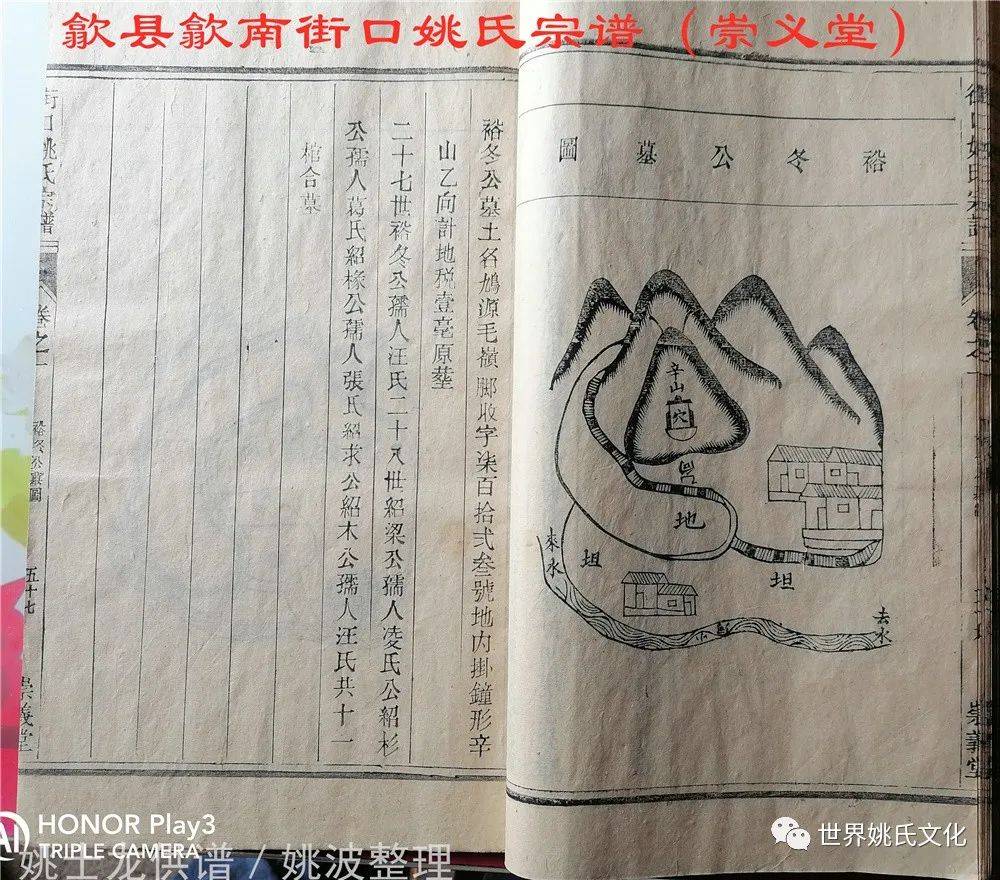 歙县歙南街口姚氏宗谱（崇义堂）
裕冬公墓圖
辛山
穴
地
坦
坦
來水
去水
崇義堂
裕冬公墓土名鳩源毛嶺腳收字柒百拾弍叁號地内掛鐘形辛
山乙向計地税壹毫原塟
二十七世裕冬公孺人汪氏二十八世紹梁公孺人凌氏公紹杉
公孺人葛氏紹椽公孺人張氏紹求公紹木公孺人汪氏共十一
棺合墓
街口姚氏宗譜
卷之一
裕冬公墓圖
五十七
崇義堂
HONOR Play3
TRIPLE CAMERA
AI
姚士龙供谱 / 姚波整理
世界姚氏文化